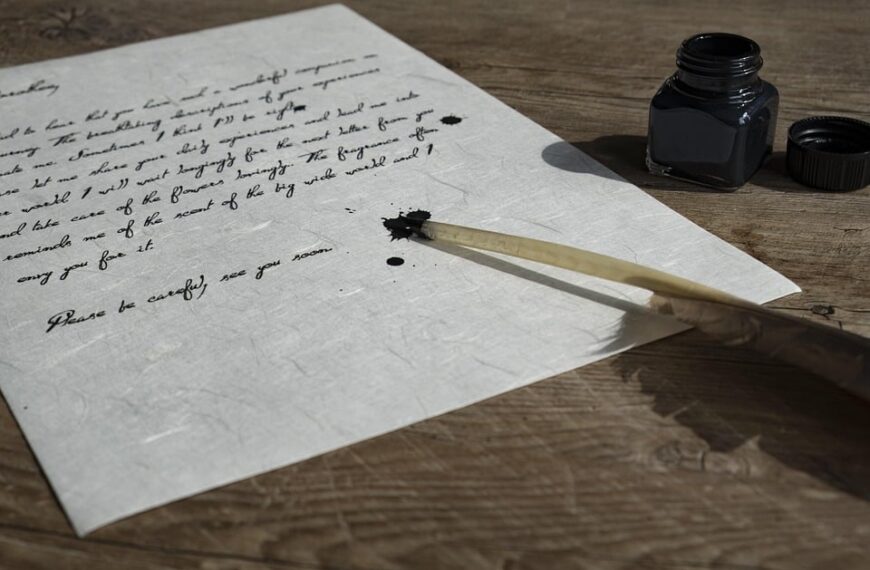 to hear that you have such a wonderful companion on
The breathtaking descriptions of your experiences
me. Sometimes I think I'll be right
let me share your daily experiences and send me into
world. I will wait longingly for the next letter from you
and take care of the flowers lovingly. The fragrance often
reminds me of the scent of the big wide world and I
envy you for it.
Please be careful, see you soon